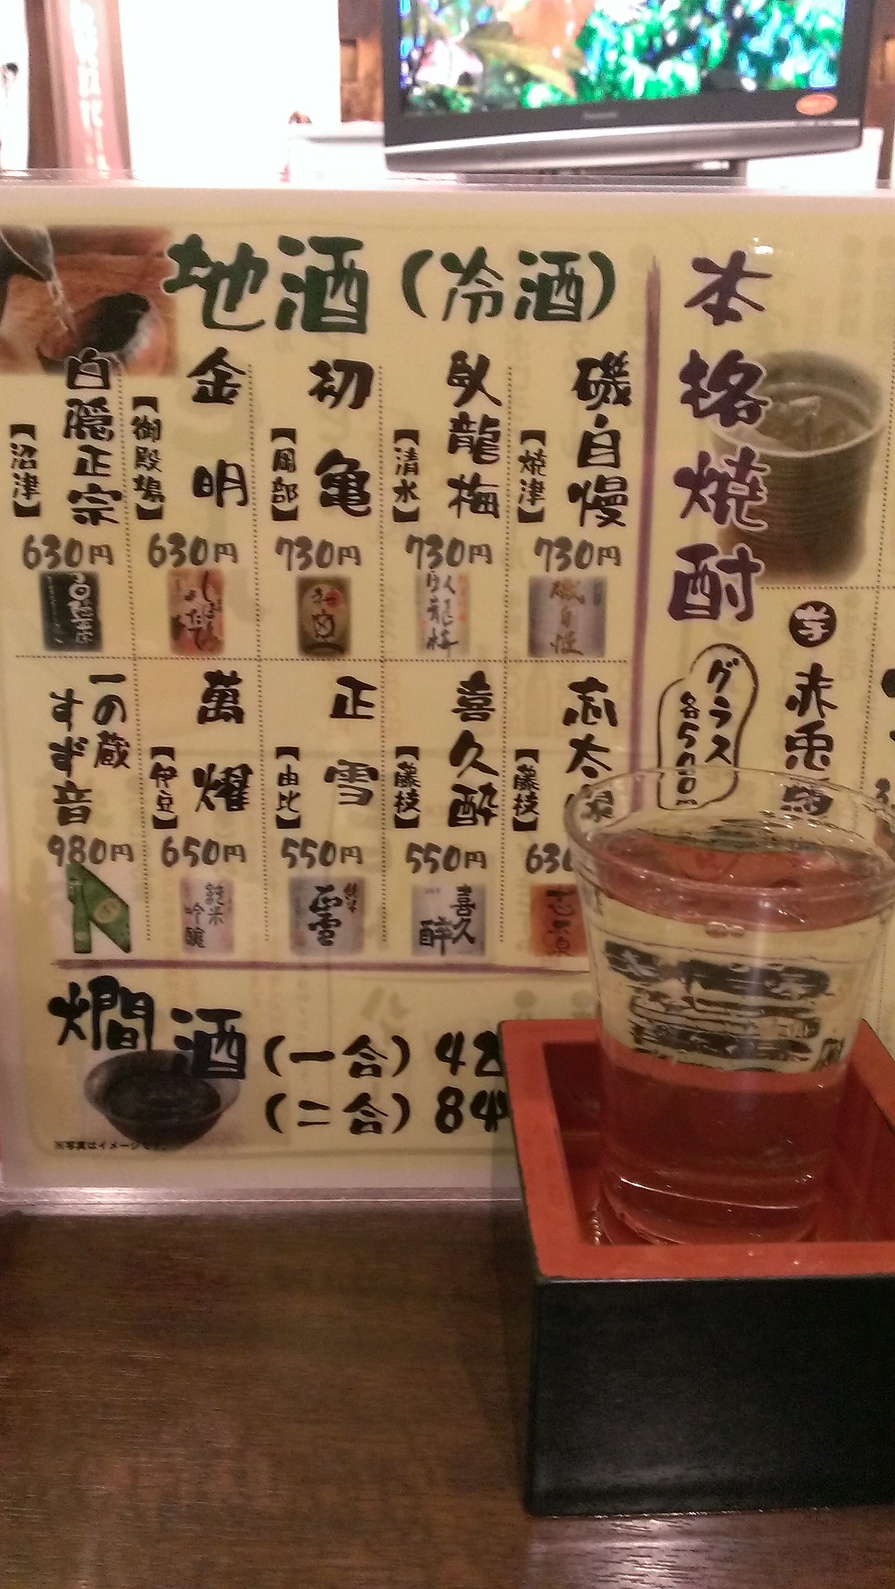 地酒（冷酒）
磯自慢
【焼津】
730円
臥龍梅
【清水】
730円
初亀
【岡部】
730円
金明
【御殿場】
630円
白隠正宗
【沼津】
630円
志太泉
【藤枝】
630
喜久酔
【藤枝】
550円
正雪
【由比】
550円
萬耀
【伊豆】
650円
一の蔵
すず音
980円
燗酒（一合）42
（二合）84
※写真はイメージです。
本格焼酎
グラス
各500円
芋
赤兎馬